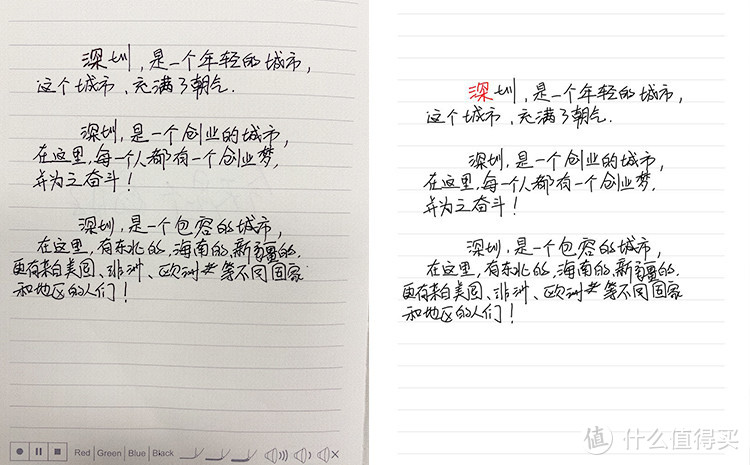 深圳,是一个年轻的城市,
这个城市、充满了朝气.
深圳,是一个创业的城市,
在这里,每一个人都有一个创业梦,
并为之奋斗!
深圳,是一个包容的城市,
在这里,有东北的,海南的,新疆的.
更有来自美国、非洲、欧洲 等不同国家
和地区的人们!
Red | Green | Blue | Black
深圳,是一个年轻的城市,
这个城市、充满了朝气.
深圳,是一个创业的城市,
在这里,每一个人都有一个创业梦,
并为之奋斗!
深圳,是一个包容的城市,
在这里,有东北的,海南的,新疆的.
更有来自美国、非洲、欧洲 等不同国家
和地区的人们!
值 什么值得买